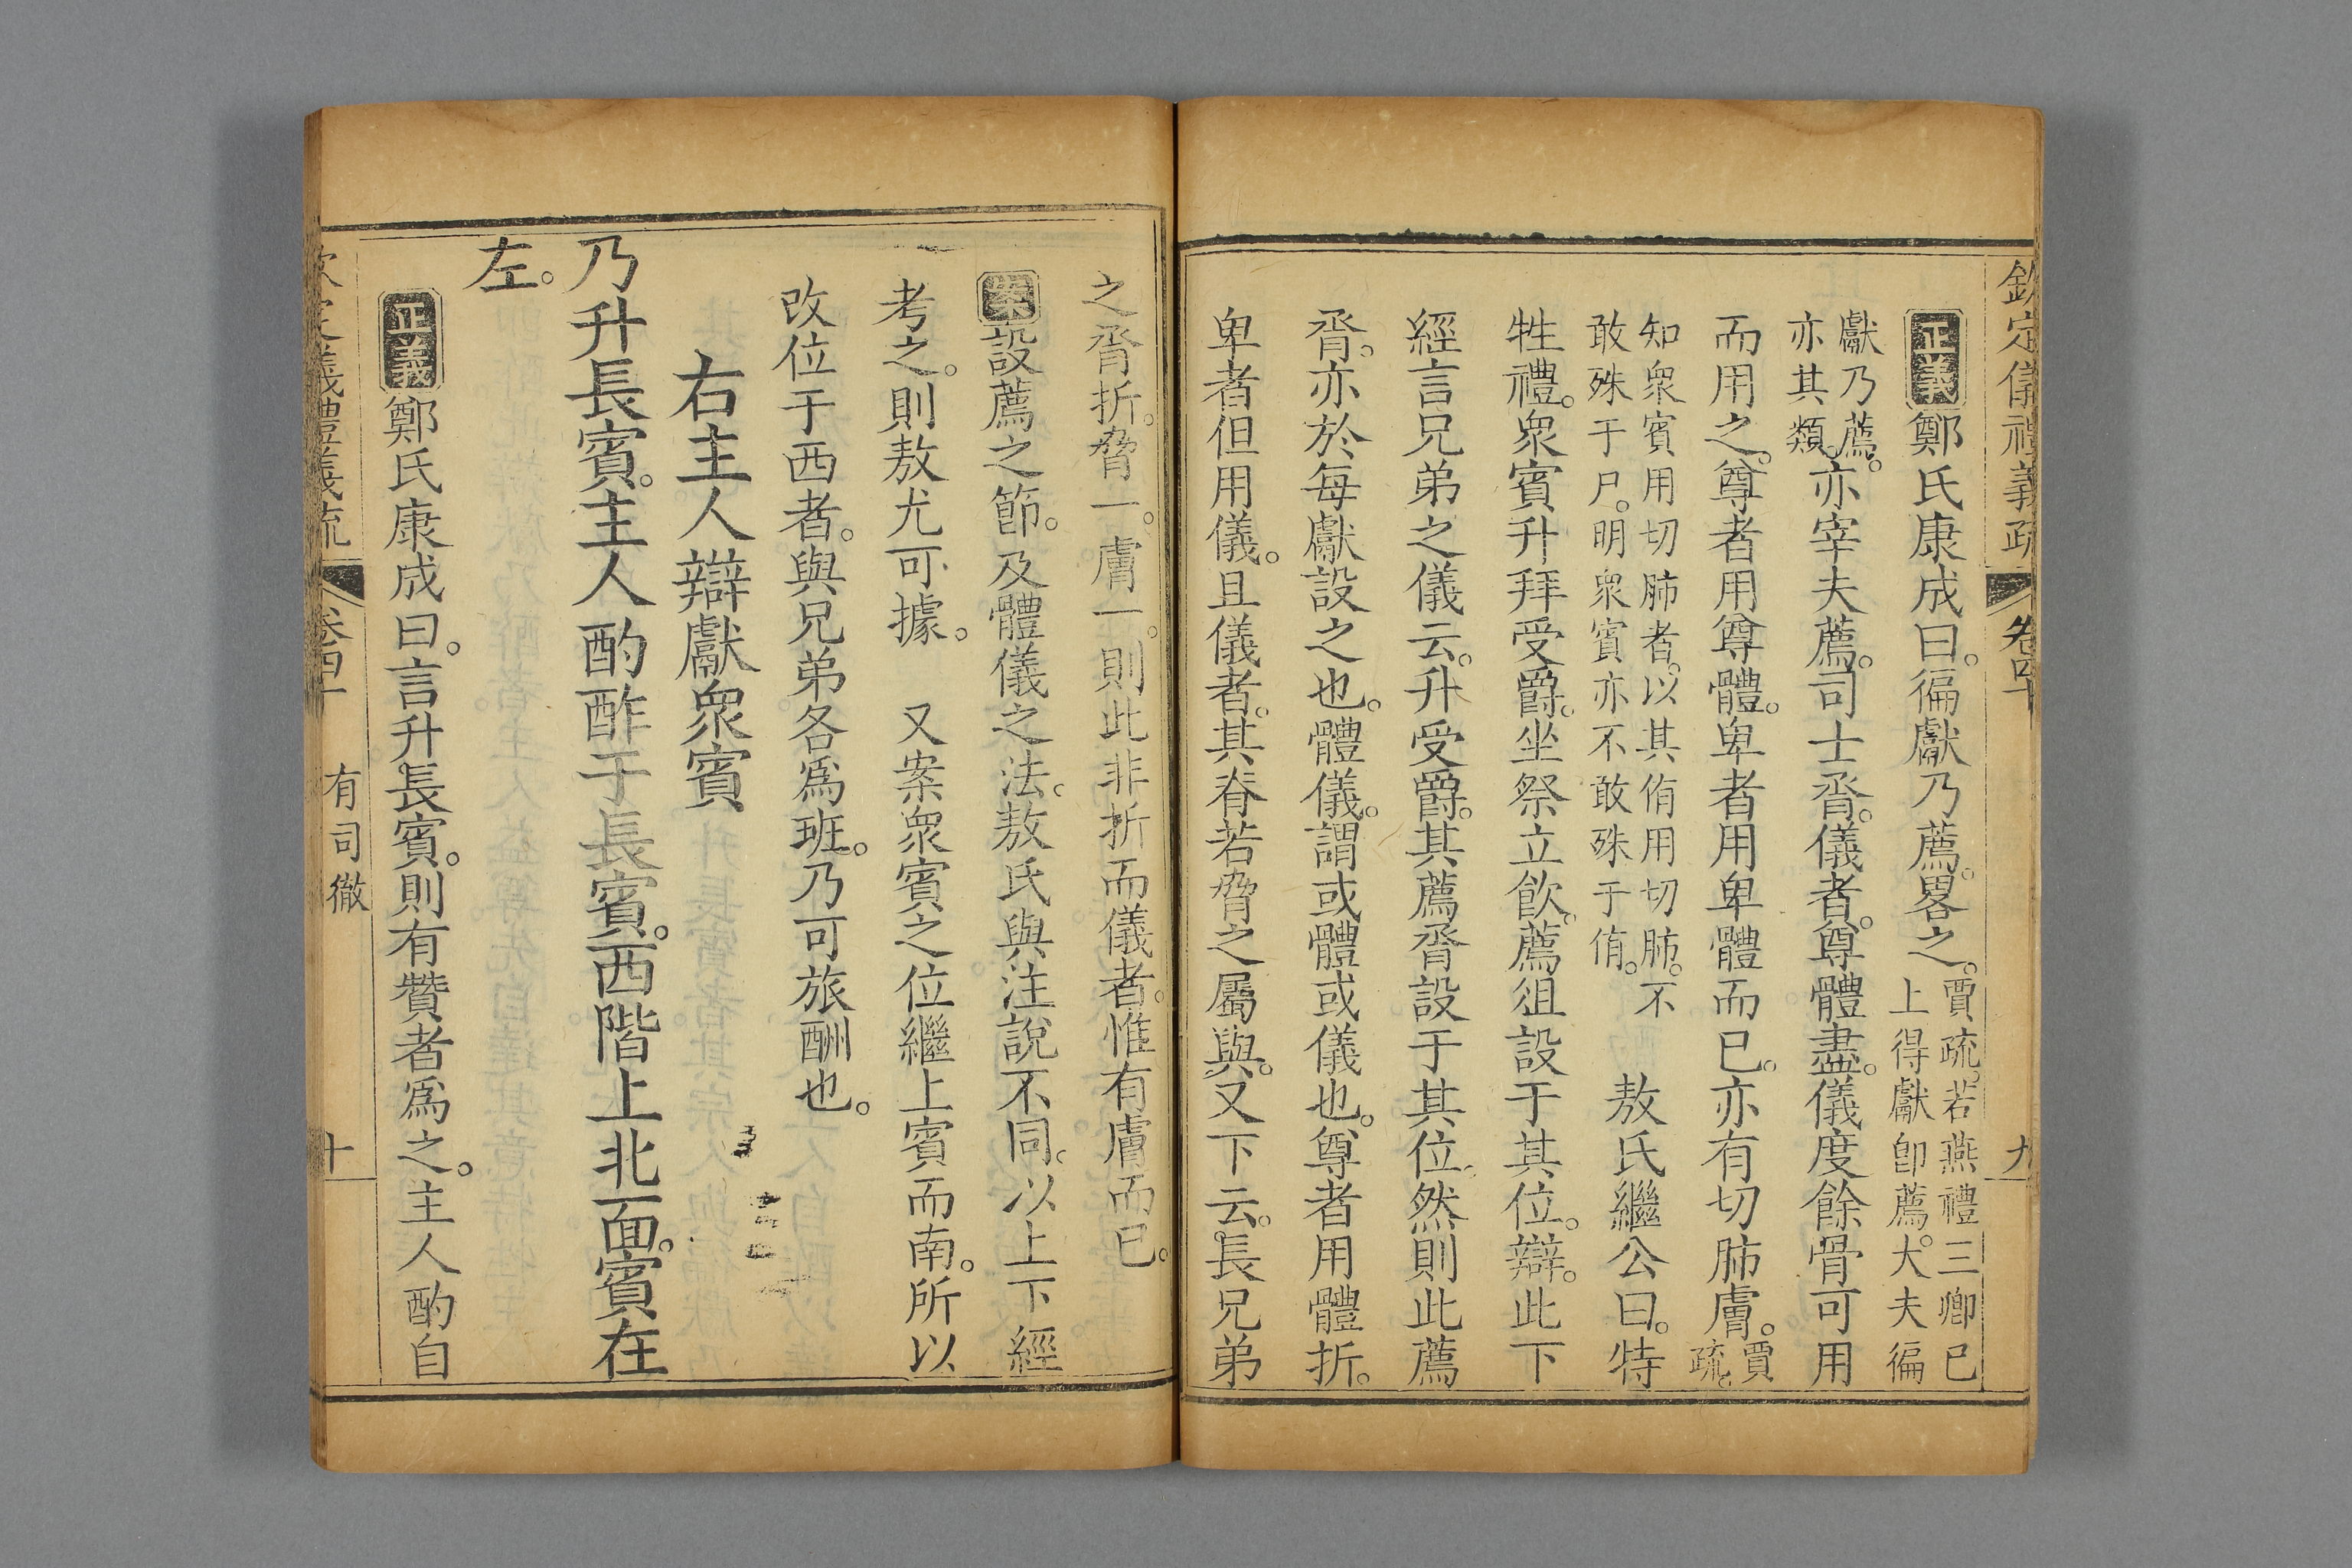 欽定儀禮義疏 卷四十 九
正義鄭氏康成曰。徧獻乃薦。畧之。賈疏。若燕禮三卿已
上得獻卽薦。大夫徧
獻乃薦。
亦其類。亦宰夫薦。司士脀。儀者。尊體盡。儀度餘骨可用
而用之。尊者用尊體。卑者用卑體而已。亦有切肺膚。賈
疏。
知衆賓用切肺者。以其侑用切肺。不
敢殊于尸。明衆賓亦不敢殊于侑。
敖氏繼公曰。特
牲禮。衆賓升拜受爵。坐祭立飲。薦俎設于其位。辯。此下
經言兄弟之儀云。升受爵。其薦脀設于其位。然則此薦
脀。亦於每獻設之也。體儀。謂或體或儀也。尊者用體折。
卑者但用儀。且儀者。其脊若脅之屬與。又下云。長兄弟
之脀折。脅一。膚一。則此非折而儀者。惟有膚而已。
案設薦之節。及體儀之法。敖氏與注說不同。以上下經
考之。則敖尤可據。 又案衆賓之位繼上賓而南。所以
改位于西者。與兄弟各爲班。乃可旅酬也。
右主人辯獻衆賓
乃升長賓。主人酌酢于長賓。西階上北面。賓在
左。
正義鄭氏康成曰。言升長賓。則有贊者爲之。主人酌自
欽定儀禮義疏 卷四十 有司徹 十